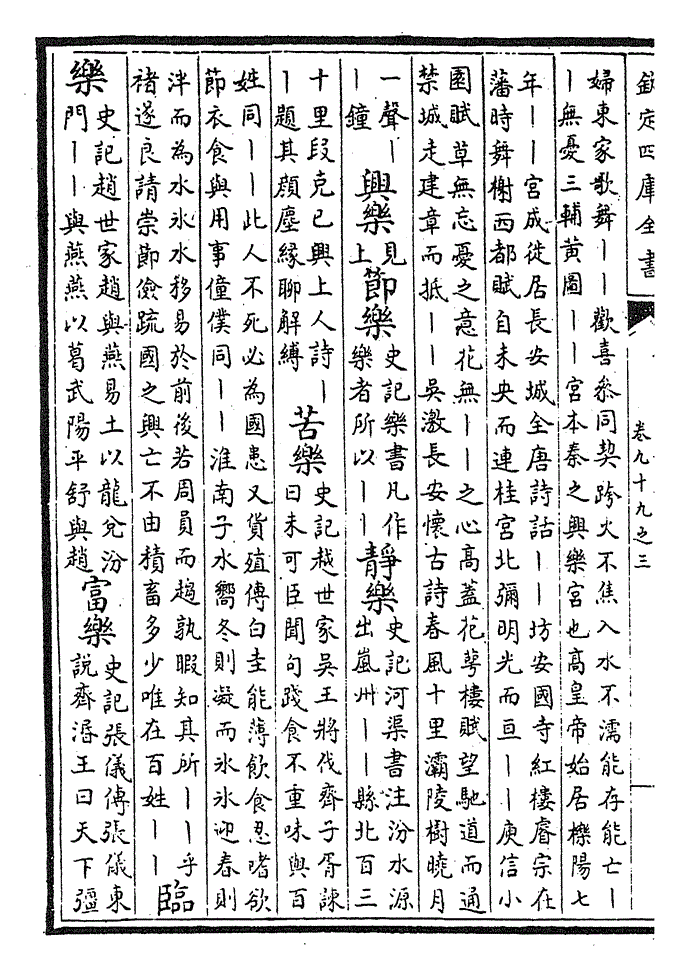 欽定四庫全書
卷九十九之三
婦東家歌舞——歡喜叅同契跨火不焦入水不濡能存能亡—
—無憂三輔黄圖——宮本秦之興樂宮也髙皇帝始居櫟陽七
年——宮成徙居長安城全唐詩話——坊安國寺紅樓睿宗在
藩時舞榭西都賦自未央而連桂宮北彌明光而亘——庾信小
園賦草無忘憂之意花無——之心髙蓋花萼樓賦望馳道而通
禁城走建章而抵——吳激長安懷古詩春風十里灞陵樹曉月
一聲—
—鐘
興樂
見
上
節樂
史記樂書凡作
樂者所以——
靜樂
史記河渠書注汾水源
出嵐州——縣北百三
十里段克已興上人詩—
—題其顔塵緣聊解縛
苦樂
史記越世家吳王將伐齊子胥諫
曰未可臣聞句踐食不重味與百
姓同——此人不死必為國患又貨殖傳白圭能薄飲食忍嗜欲
節衣食與用事僮僕同——淮南子水嚮冬則凝而氷氷迎春則
泮而為水氷水移易於前後若周員而趨孰暇知其所——乎
褚遂良請崇節儉疏國之興亡不由積畜多少唯在百姓——
臨
樂
史記趙世家趙與燕易土以龍兌汾
門——與燕燕以葛武陽平舒與趙
富樂
史記張儀傳張儀東
說齊湣王曰天下彊